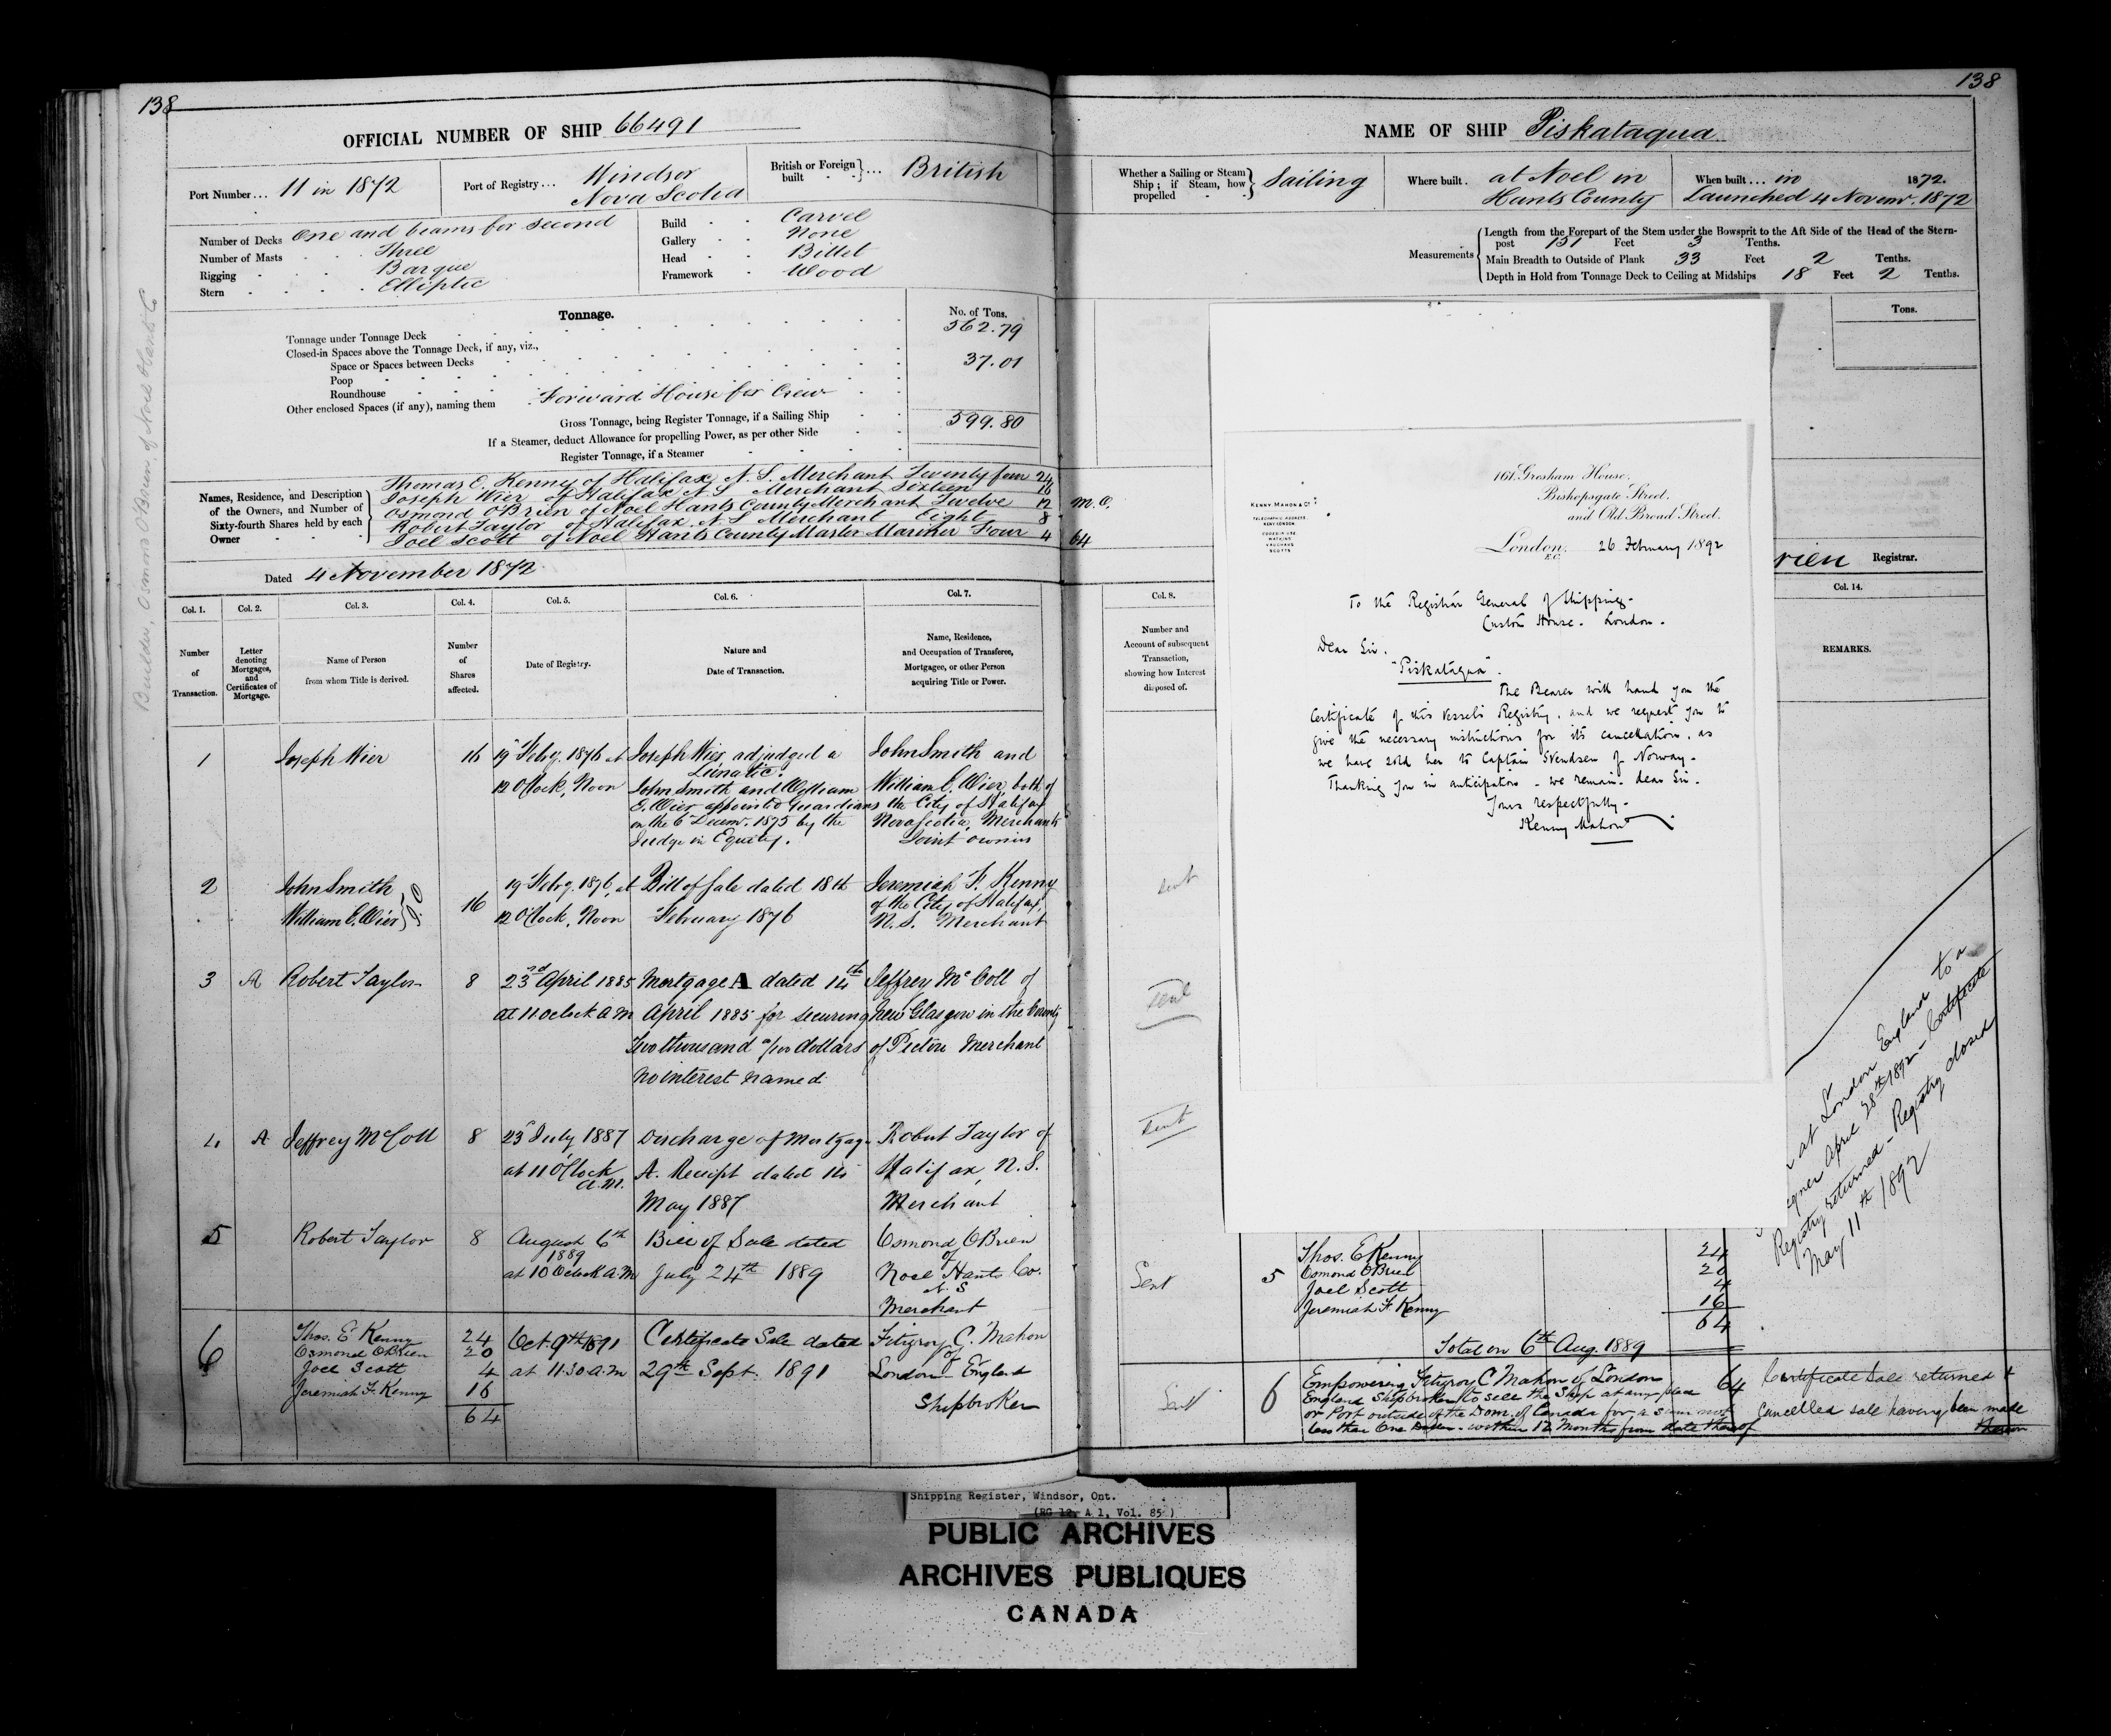 138
OFFICIAL NUMBER OF SHIP 66491
Port Number... 11 in 1872
Port of Registry... Windsor
Nova Scotia
British or Foreign built ... British
Number of Decks One and beams for second
Number of Masts Three
Rigging Barque
Stern Elliptic
Build Carvel
Gallery None
Head Billet
Framework Wood
Tonnage.
No. of Tons.
Tonnage under Tonnage Deck 562.79
Closed-in Spaces above the Tonnage Deck, if any, viz.,
Space or Spaces between Decks 37.01
Poop
Roundhouse
Other enclosed Spaces (if any), naming them Forward House for Crew
Gross Tonnage, being Register Tonnage, if a Sailing Ship 599.80
If a Steamer, deduct Allowance for propelling Power, as per other Side
Register Tonnage, if a Steamer
Names, Residence, and Description
of the Owners, and Number of
Sixty-fourth Shares held by each
Owner
Thomas E. Kenny of Halifax N.S. Merchant Twenty four 24
Joseph Wier of Halifax N S Merchant Sixteen 16
Osmond O'Brien of Noel Hants County Merchant Twelve 12
Robert Taylor of Halifax N.S Merchant Eight 8
Joel Scott of Noel Hants County Master Mariner Four 4
64
Dated 4 November 1872
Builder, Osmond O'Brien of Noel Hants C
Col. 1. Col. 2. Col. 3. Col. 4. Col. 5. Col. 6. Col. 7.
Number of Transaction.
Letter denoting Mortgages, and Certificates of Mortgage.
Name of Person from whom Title is derived.
Number of Shares affected.
Date of Registry.
Nature and Date of Transaction.
Name, Residence, and Occupation of Transferee, Mortgagee, or other Person acquiring Title or Power.
1
Joseph Wier
16
19 Feby. 1876 at
12 O'Clock, Noon
Joseph Wier adjudged a
Lunatic.
John Smith and William
C. Wier appointed Guardians
on the 6 Decemr. 1875 by the
Judge in Equity.
John Smith and
William C. Wier, both of
the City of Halifax
Nova Scotia, Merchants
Joint owners
2
John Smith
William C. Wier } J.O
16
19 Feby. 1876, at
12 O'Clock, Noon
Bill of Sale dated 18th
February 1876
Jeremiah F. Kenny
of the City of Halifax,
N.S. Merchant
3
A
Robert Taylor
8
23rd April 1885
at 11 Oclock A M
Mortgage A dated 14th
April 1885 for securing
Two thousand /100 dollars
No interest named
Jeffrey McColl of
New Glasgow in the County
of Pictou Merchant
4
A
Jeffrey McColl
8
23 July 1887
at 11 O'Clock
a.m.
Discharge of Mortgage
A. Receipt dated 14
May 1887
Robert Taylor of
Halifax, N.S.
Merchant
5
Robert Taylor
8
August 6th
1889
at 10 Oclock A.M
Bill of Sale dated
July 24th 1889
Osmond O'Brien
of
Noel Hants Co.
N.S
Merchant
6
Thos. E Kenny 24
Osmond O'Brien 20
Joel Scott 4
Jeremiah F. Kenny 16
64
Oct 9th 1891
at 11:30 A.M
Certificate Sale dated
29th Sept. 1891
Fitzroy C. Mahon
of
London England
Shipbroker
138
NAME OF SHIP Piskataqua
Whether a Sailing or Steam Ship; if Steam, how propelled } Sailing
Where built. at Noel in
Hants County
When built ... in 1872.
Launched 4 Novemr. 1872
Measurements
Length from the Forepart of the Stem under the Bowsprit to the Aft Side of the Head of the Stern-
post 131 Feet 3 Tenths.
Main Breadth to Outside of Plank 33 Feet 2 Tenths.
Depth in Hold from Tonnage Deck to Ceiling at Midships 18 Feet 2 Tenths.
Tons.
M.O.
rien Registrar.
Col. 8.
Number and
Account of subsequent
Transaction,
showing how Interest
disposed of.
Col. 14.
REMARKS.
161 Gresham House,
Bishopsgate Street,
and Old Broad Street,
KENNY MAHON & Co
TELEGRAPHIC ADDRESS,
KENY LONDON
CODES IN USE
WATKINS
VAUGHANS
SCOTTS
London, 26 February 1892
E.C.
To the Registrar General of Shipping-
Custom House. London.
Dear Sir.
"Piskataqua".
The Bearer will hand you the
Certificate of this Vessels Registry, and we request you to
give the necessary instructions for its cancellation, as
we have sold her to Captain Svendsen of Norway-
Thanking you in anticipation - we remain- dear Sir.
Yours respectfully-
Kenny Mahon
sent
sent
sent
Sent
Sent
5
Thos. E Kenny 24
Osmond O'Brien 20
Joel Scott 4
Jeremiah F. Kenny 16
64
Total on 6th Aug. 1889
6
Empowering Fitzroy C Mahon of London
England Shipbroker to sell the Ship at any place
or Port outside of the Dom. of Canada for a sum not
less than One - within 12 Months from date thereof
64
Certificate Sale returned &
Cancelled sale having been made
thereon
at London England to a
igner April 28th 1892- Certificate
Registry returned - Registry closed
May 11th 1892
Shipping Register, Windsor, Ont.
(RG 12, A 1, Vol. 85)
PUBLIC ARCHIVES
ARCHIVES PUBLIQUES
CANADA